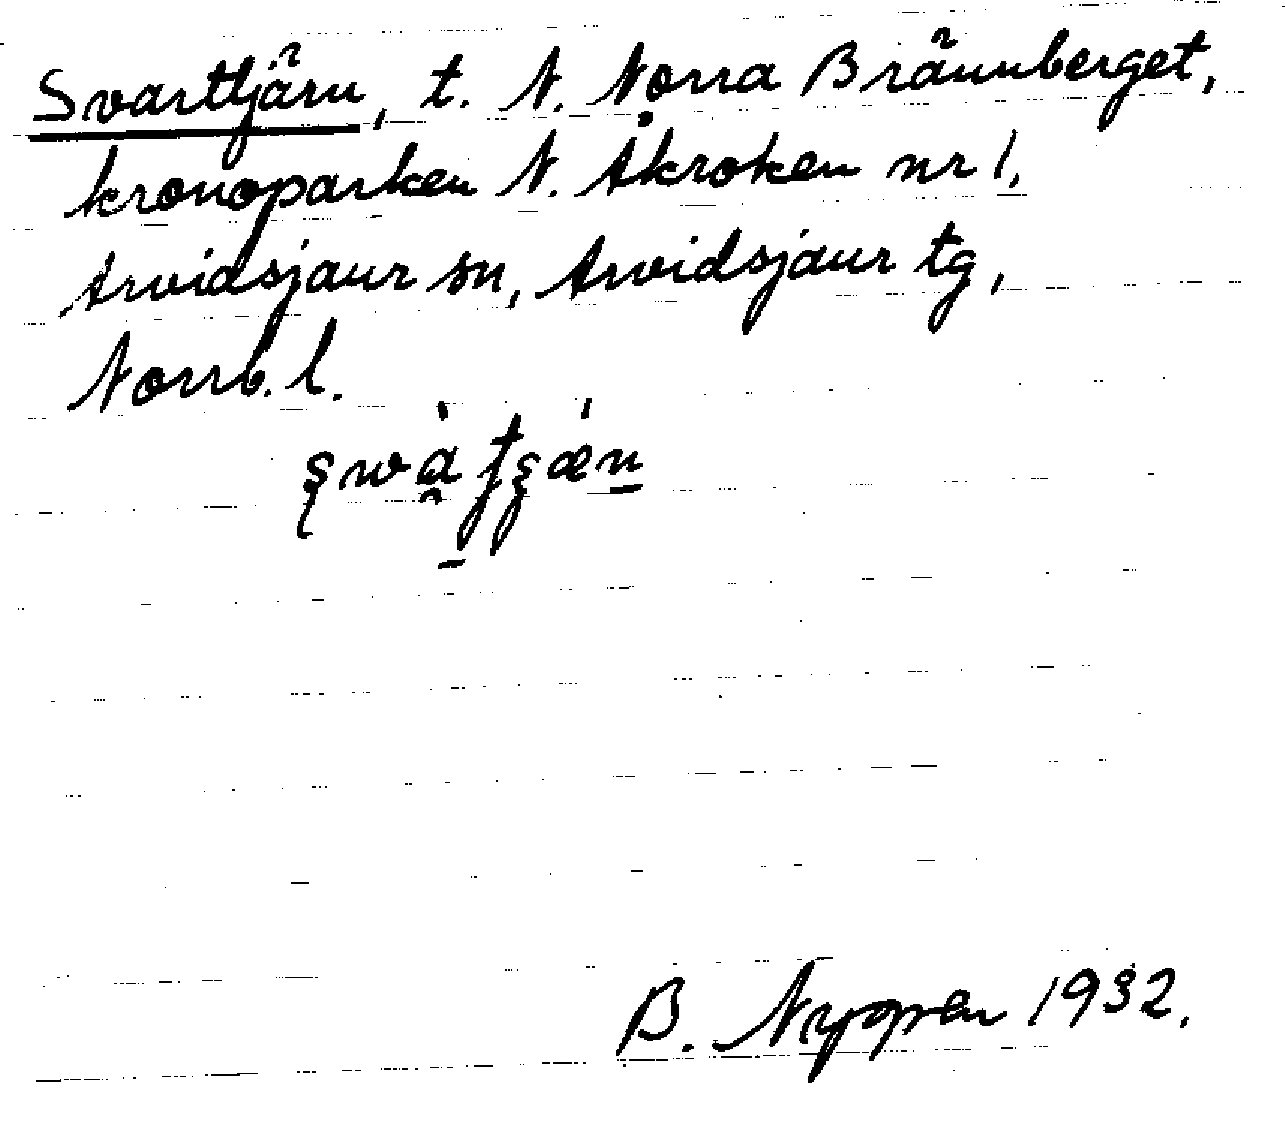 Svarttjärn, t. N. Norra Brännberget,
kronoparken N. Åkroken nr 1,
Arvidsjaur sn, Arvidsjaur tg,
Norrb. l.
B. Nyppen 1932.